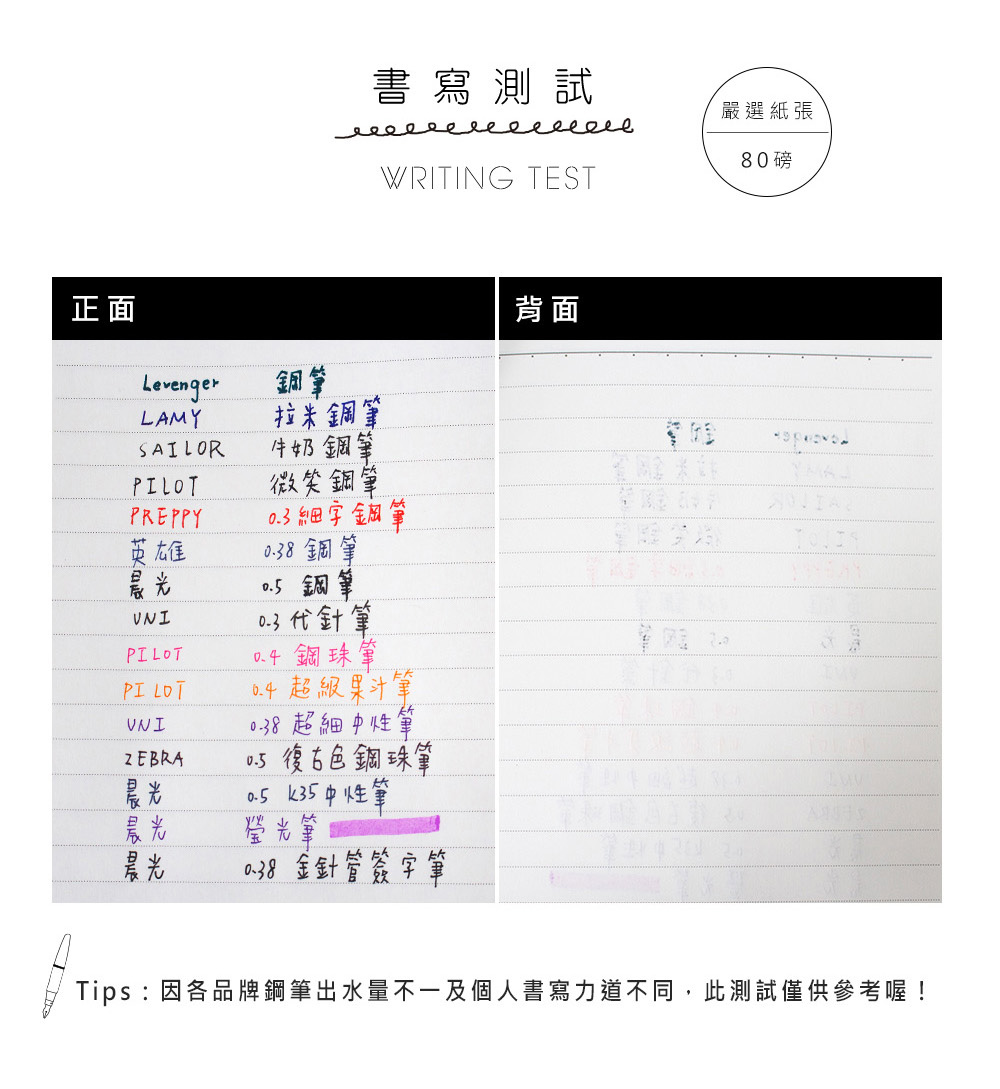 書寫測試
WRITING TEST
嚴選紙張
80磅
正面
Levenger 鋼筆
LAMY 拉米鋼筆
SAILOR 牛奶鋼筆
PILOT 微笑鋼筆
PREPPY 0.3細字鋼筆
英雄 0.38 鋼筆
晨光 0.5 鋼筆
UNI 0.3代針筆
PILOT 0.4 鋼珠筆
PILOT 0.4 超級果汁筆
UNI 0.38 超細中性筆
ZEBRA 0.5 復古色鋼珠筆
晨光 0.5 K35中性筆
晨光 螢光筆
晨光 0.38 金針管簽字筆
背面
Levenger 鋼筆
LAMY 拉米鋼筆
SAILOR 牛奶鋼筆
PILOT 微笑鋼筆
PREPPY 0.3細字鋼筆
晨光 0.5 鋼筆
Tips：因各品牌鋼筆出水量不一及個人書寫力道不同，此測試僅供參考喔！